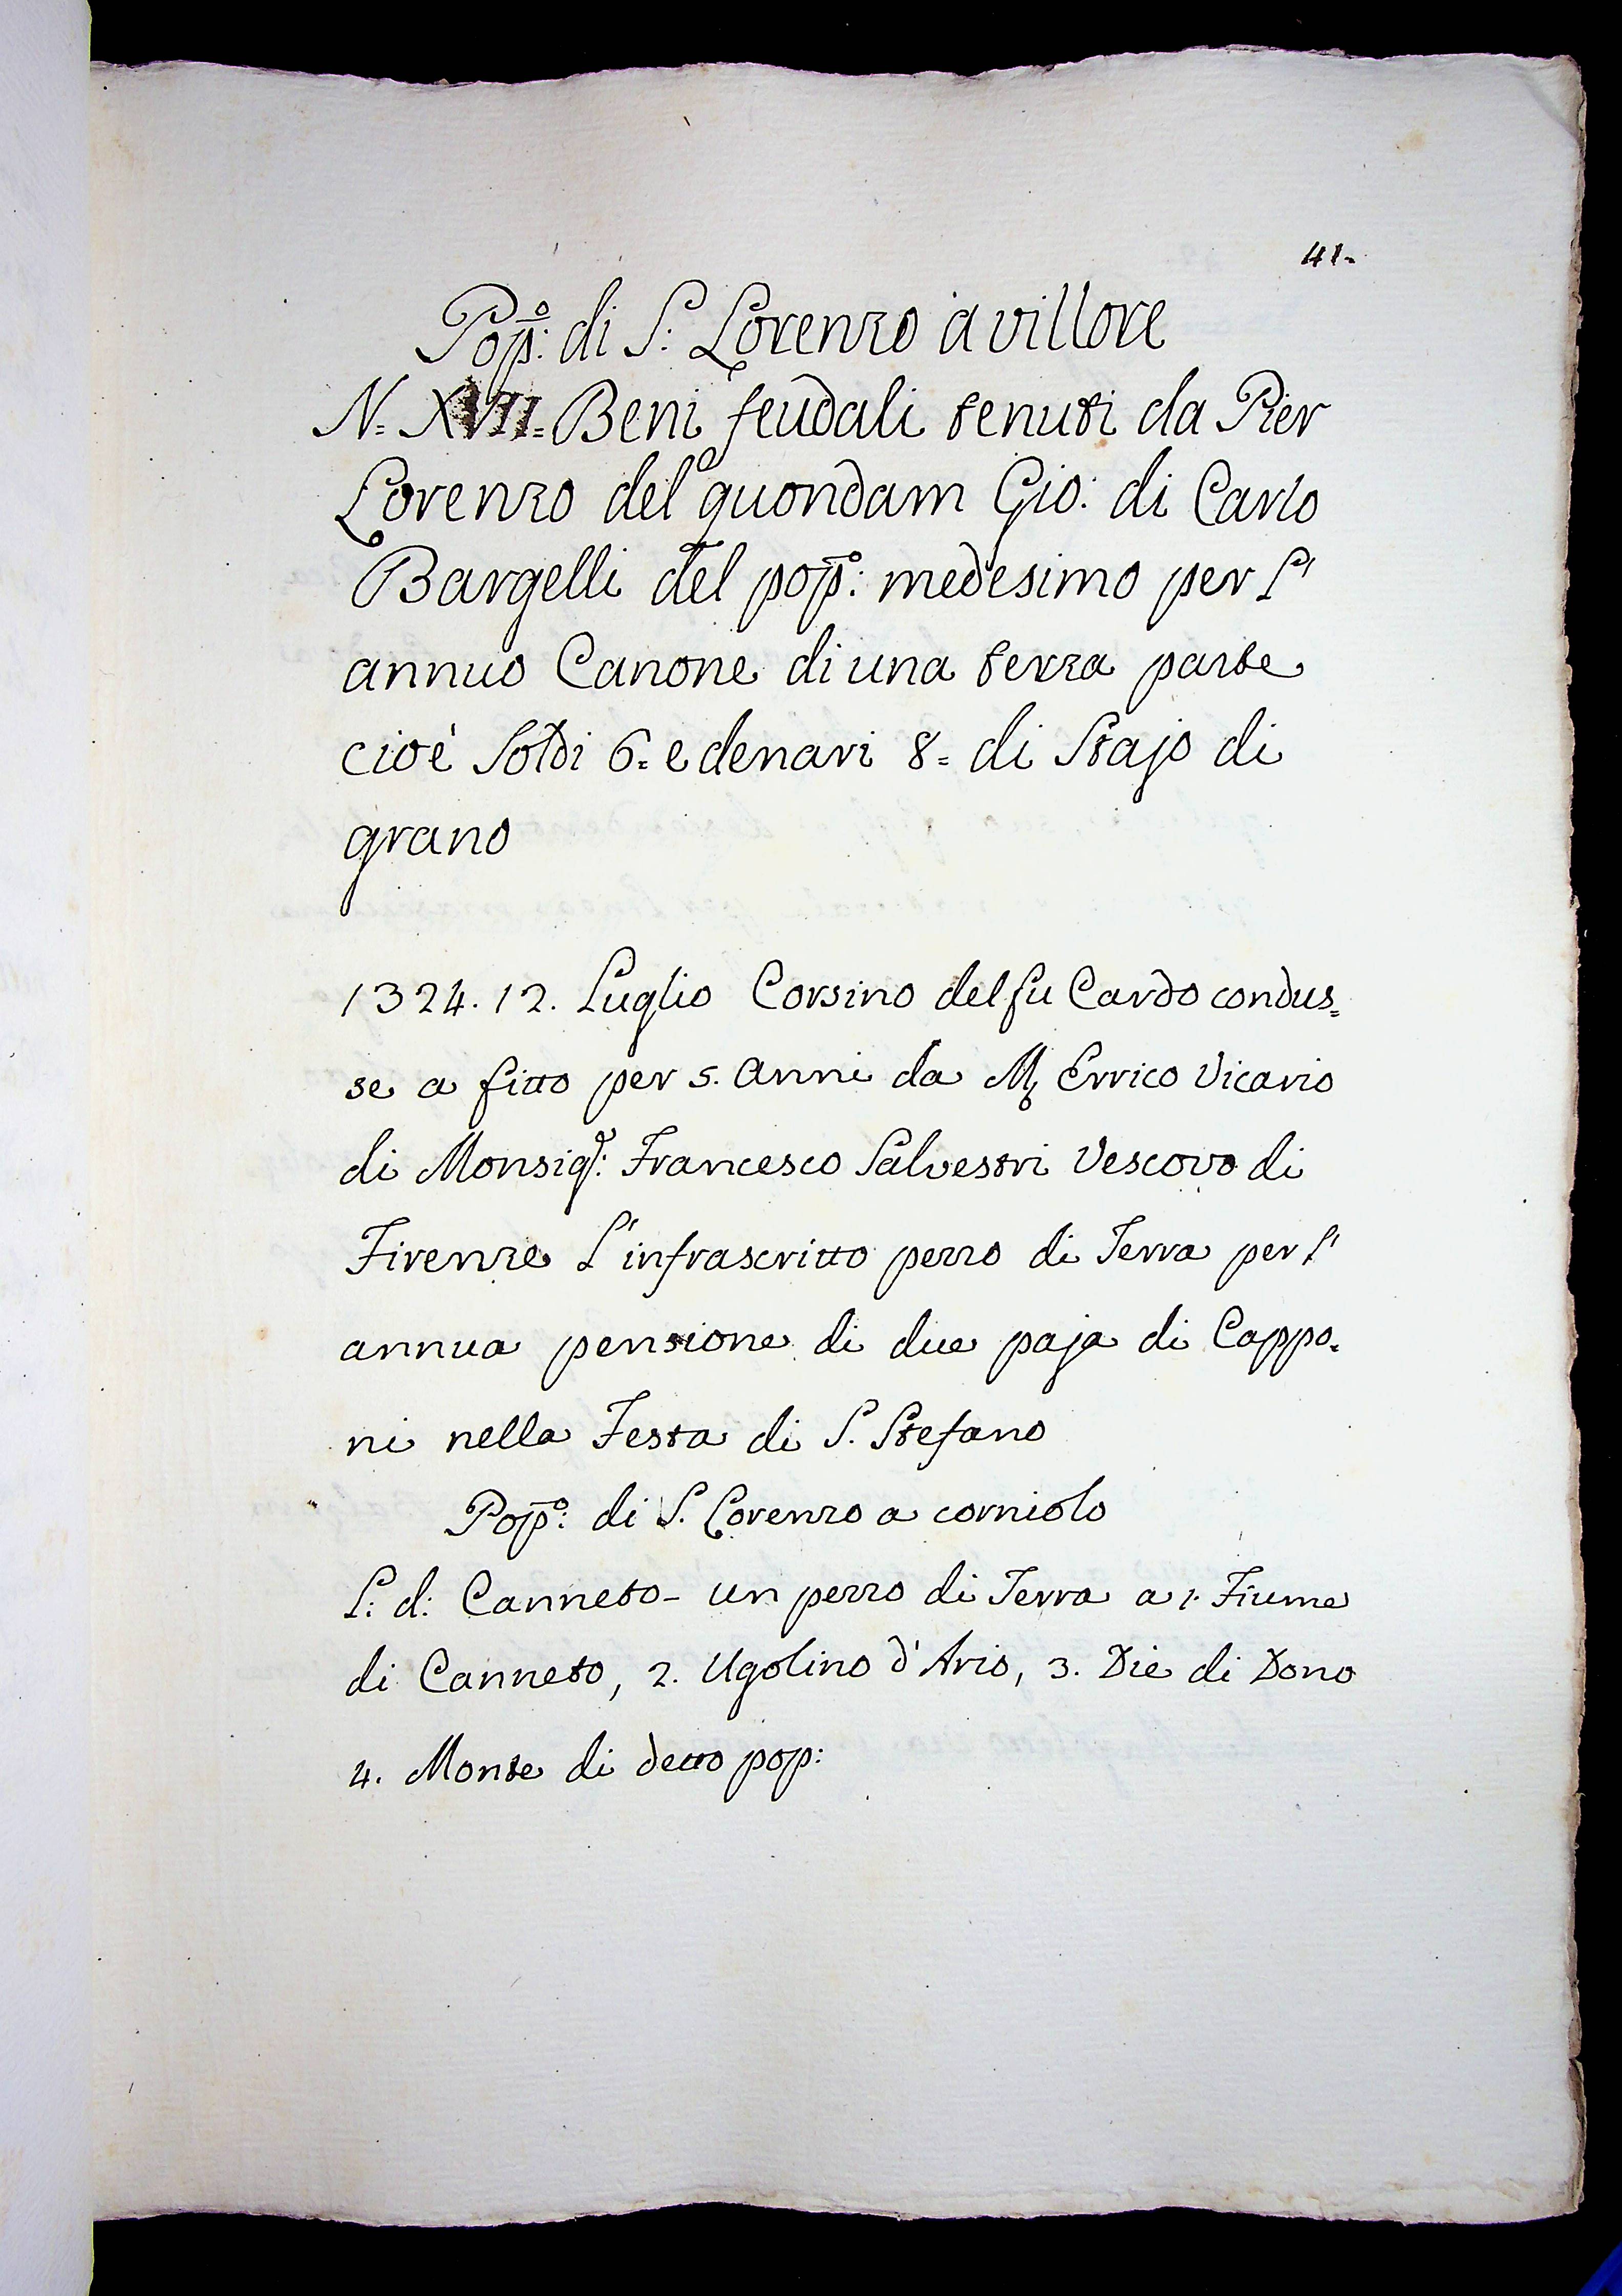 41-
Pop:º di S: Lorenzo a villore
N= XVII= Beni feudali tenuti da Pier
Lorenzo del quondam Gio: di Carlo
Bargelli del pop:º medesimo per l'
annuo Canone di una terza parte
cioè Soldi 6= e denari 8= di Stajo di
grano
1324. 12. Luglio Corsino del fu Cardo condus=
se a fitto per 5. Anni da M. Errico Vicario
di Monsig:r Francesco Salvestri Vescovo di
Firenze L'infrascritto pezzo di Terra per l'
annua pensione di due paja di Cappo=
ni nella Festa di S. Stefano
Pop:º di S. Lorenzo a corniolo
L: d: Canneto - un pezzo di Terra a 1. Fiume
di Canneto, 2. Ugolino d'Ario, 3. Die di Dono
4. Monte di detto pop: